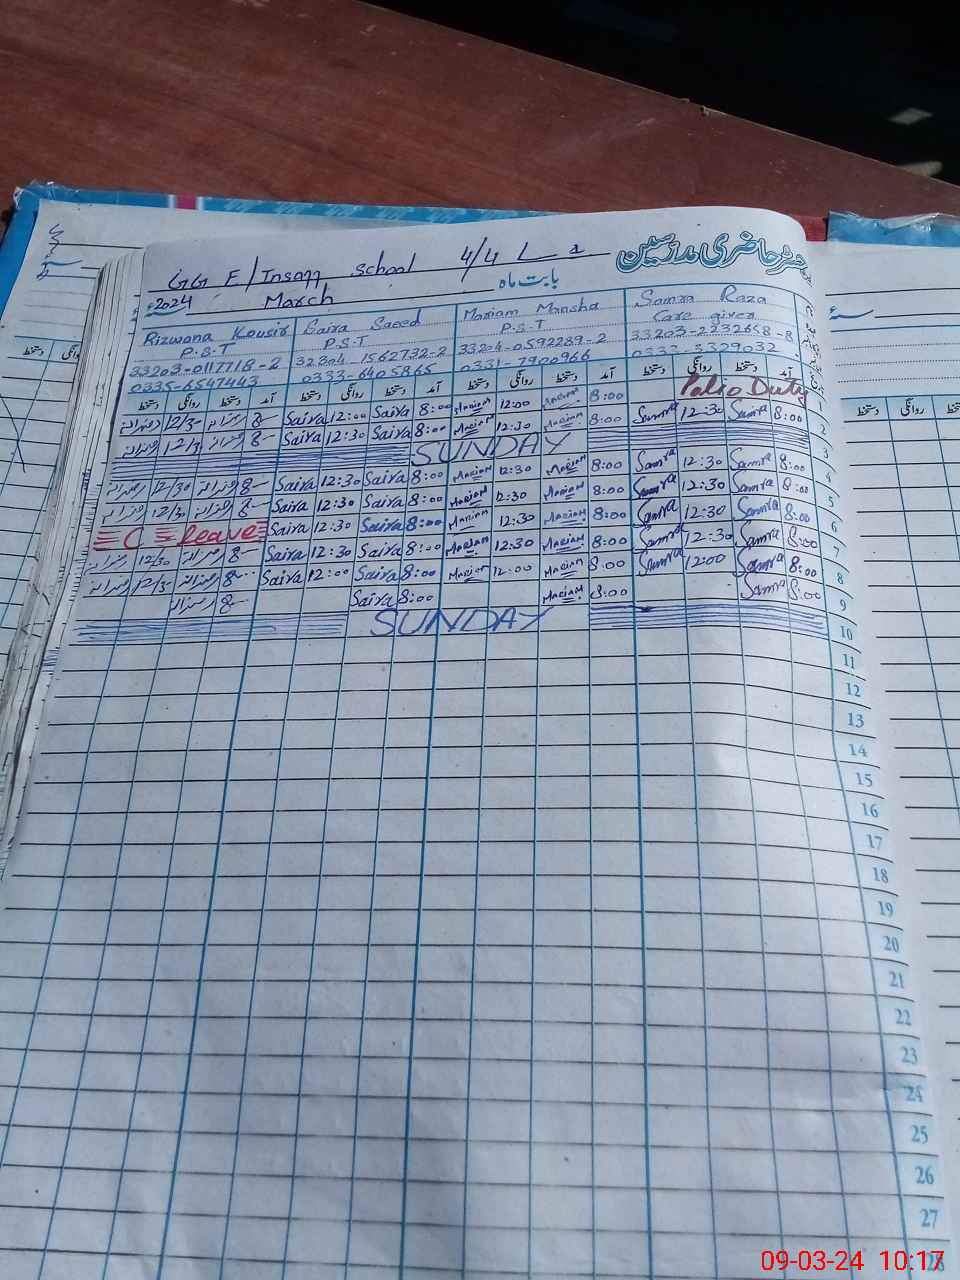 رجسٹر حاضری مدرسین
GGE/Insaf School 4/4 L
2024 March بابت ماہ
Rizwana Kousir Saira Saeed Mariam Mansha Samra Raza
P.S.T P.S.T P.S.T Care giver
33203-0117718-2 32304-1562732-2 33204-0592289-2 33203-2232658-8
0335-6547443 0333-6405865 0331-7900966 0333-3329032
دستخط روانگی دستخط آمد دستخط روانگی دستخط آمد دستخط روانگی دستخط آمد دستخط روانگی دستخط آمد
8 Saira 12:00 Saira 8:00 Mariam 12:00 Mariam 8:00 Polio Duty 1
8 Saira 12:30 Saira 8:00 Mariam 12:30 Mariam 8:00 Samra 12:30 Samra 8:00 2
SUNDAY 3
12/30 8 Saira 12:30 Saira 8:00 Mariam 12:30 Mariam 8:00 Samra 12:30 Samra 8:00 4
12/30 8 Saira 12:30 Saira 8:00 Mariam 12:30 Mariam 8:00 Samra 12:30 Samra 8:00 5
C leave Saira 12:30 Saira 8:00 Mariam 12:30 Mariam 8:00 Samra 12:30 Samra 8:00 6
12/30 8 Saira 12:30 Saira 8:00 Mariam 12:30 Mariam 8:00 Samra 12:30 Samra 8:00 7
8 Saira 12:00 Saira 8:00 Mariam 12:00 Mariam 8:00 Samra 12:00 Samra 8:00 8
8 Saira 8:00 Mariam 8:00 Samra 8:00 9
SUNDAY 10
11
12
13
14
15
16
17
18
19
20
21
22
23
24
25
26
27
28
دستخط روانگی دستخط
09-03-24 10:17